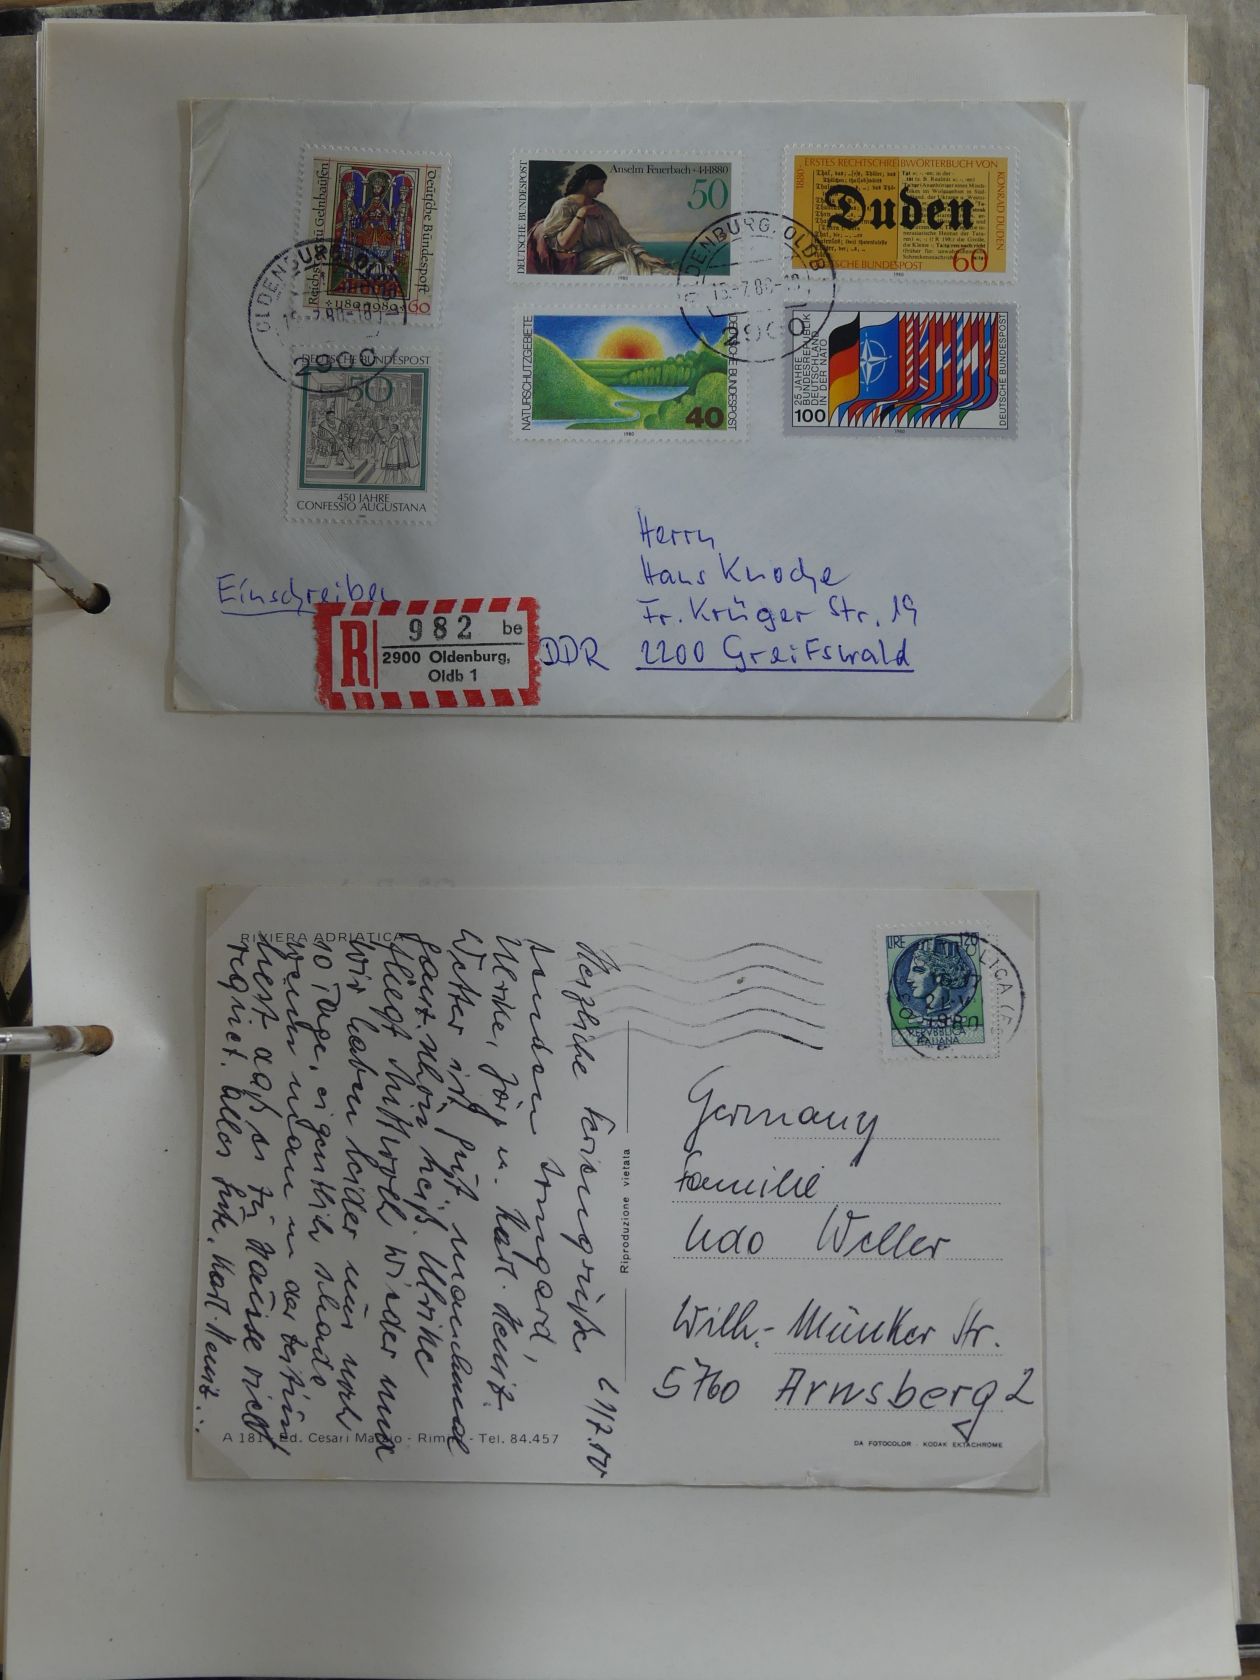 Deutsche Bundespost
Reichsstadt Gelnhausen
60
DEUTSCHE BUNDESPOST
Anselm Feuerbach · 4·1·1880
50
1980
ERSTES RECHTSCHREIBWÖRTERBUCH VON
KONRAD DUDEN
1880
Duden
DEUTSCHE BUNDESPOST
60
1980
OLDENBURG, OLDB
2900
OLDENBURG, OLDB
2900
DEUTSCHE BUNDESPOST
50
450 JAHRE
CONFESSIO AUGUSTANA
NATURSCHUTZGEBIETE
DEUTSCHE BUNDESPOST
40
1980
25 JAHRE
BUNDESREPUBLIK
DEUTSCHLAND
IN DER NATO
100
DEUTSCHE BUNDESPOST
1980
Herrn
Hans Knoche
Fr. Krüger Str. 19
DDR 2200 Greifswald
Einschreiben
R 982 be
2900 Oldenburg,
Oldb 1
RIVIERA ADRIATICA
Herzliche Feriengrüße
senden Irmgard,
Ulrike, Jörg u. Karl-Heinz.
Wetter ist gut manchmal
ganz schön heiß. Ulrike
fliegt Mittwoch wieder und
Wir haben leider nur noch
10 Tage, eigentlich schade
wenn man in der Zeitung
liest daß es zu Hause viel
regnet. Alles Gute, Karl-Heinz..
LIRE 120
REPVBBLICA
ITALIANA
1980
Germany
Familie
Udo Weller
Wilh.-Münker Str.
5760 Arnsberg 2
Riproduzione vietata
A 181 - Ed. Cesari - Tel. 84.457
DA FOTOCOLOR · KODAK EKTACHROME